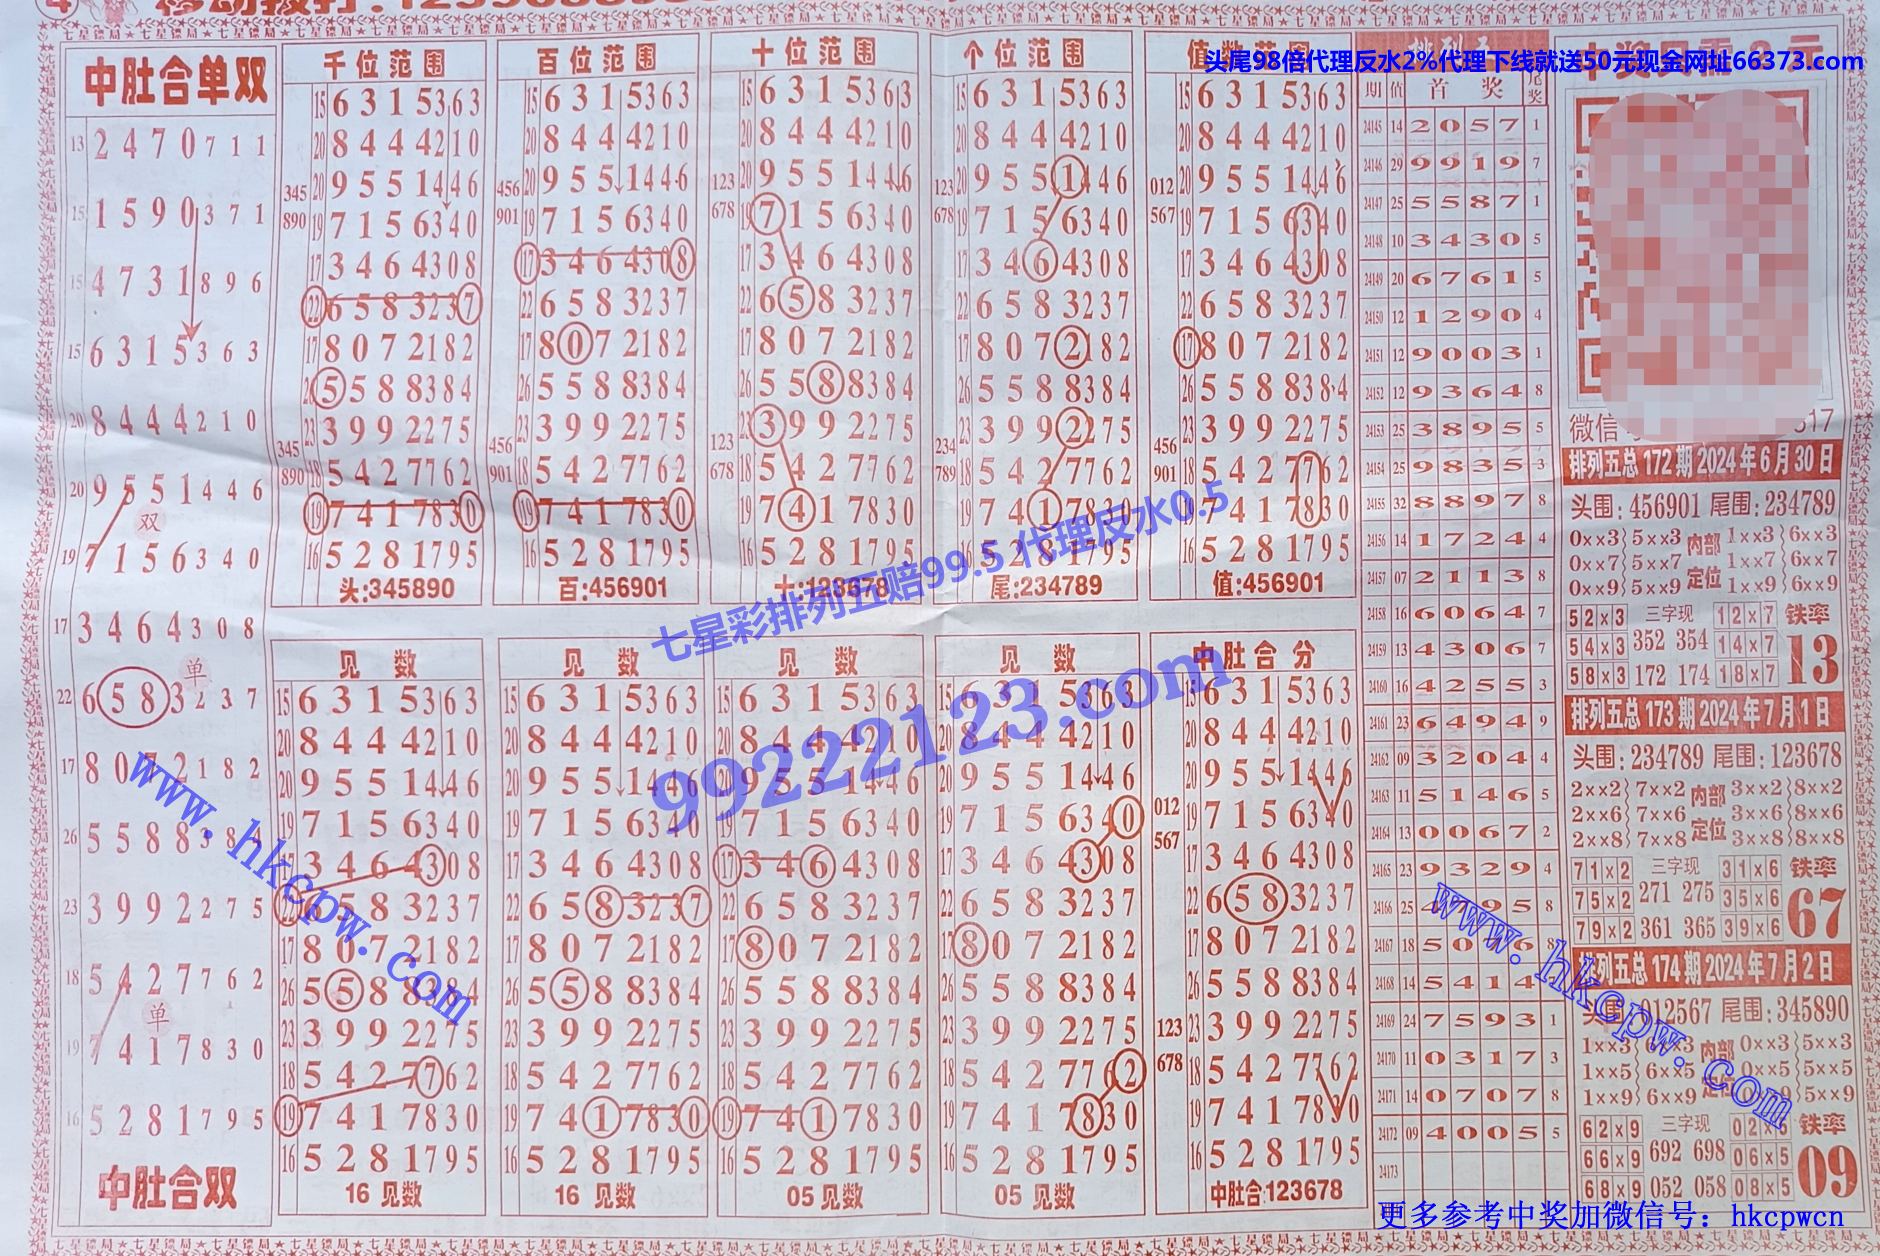 头尾98倍代理反水2%代理下线就送50元现金网址66373.com
中肚合单双
13 2470711
15 1590371
15 4731896
15 6315363
20 8444210
20 9551446
双
19 7156340
17 3464308
单
22 6583237
17 8072182
26 5588384
23 3992275
18 5427762
单
19 7417830
16 5281795
中肚合双
千位范围
15 6315363
20 8444210
20 9551446
345
890
19 7156340
17 3464308
22 6583237
17 8072182
26 5588384
23 3992275
345
890
18 5427762
19 7417830
16 5281795
头:345890
百位范围
15 6315363
20 8444210
20 9551446
456
901
19 7156340
17 3464308
22 6583237
17 8072182
26 5588384
23 3992275
456
901
18 5427762
19 7417830
16 5281795
百:456901
十位范围
15 6315363
20 8444210
20 9551446
123
678
19 7156340
17 3464308
22 6583237
17 8072182
26 5588384
23 3992275
123
678
18 5427762
19 7417830
16 5281795
十:123678
个位范围
15 6315363
20 8444210
20 9551446
123
678
19 7156340
17 3464308
22 6583237
17 8072182
26 5588384
23 3992275
234
789
18 5427762
19 7417830
16 5281795
尾:234789
值数范围
15 6315363
20 8444210
20 9551446
012
567
19 7156340
17 3464308
22 6583237
17 8072182
26 5588384
23 3992275
456
901
18 5427762
19 7417830
16 5281795
值:456901
见数
15 6315363
20 8444210
20 9551446
19 7156340
17 3464308
22 6583237
17 8072182
26 5588384
23 3992275
18 5427762
19 7417830
16 5281795
16 见数
见数
15 6315363
20 8444210
20 9551446
19 7156340
17 3464308
22 6583237
17 8072182
26 5588384
23 3992275
18 5427762
19 7417830
16 5281795
16 见数
见数
15 6315363
20 8444210
20 9551446
19 7156340
17 3464308
22 6583237
17 8072182
26 5588384
23 3992275
18 5427762
19 7417830
16 5281795
05 见数
见数
15 6315363
20 8444210
20 9551446
19 7156340
17 3464308
22 6583237
17 8072182
26 5588384
23 3992275
18 5427762
19 7417830
16 5281795
05 见数
中肚合分
15 6315363
20 8444210
20 9551446
012
567
19 7156340
17 3464308
22 6583237
17 8072182
26 5588384
23 3992275
123
678
18 5427762
19 7417830
16 5281795
中肚合:123678
期 值 首奖 尾奖
24145 14 2057 1
24146 29 9919 7
24147 25 5587 1
24148 10 3430 5
24149 20 6761 5
24150 12 1290 4
24151 12 9003 1
24152 12 9364 8
24153 25 3895 5
24154 25 9835 3
24155 32 8897 8
24156 14 1724 4
24157 07 2113 8
24158 16 6064 7
24159 13 4306 7
24160 16 4255 3
24161 23 6494 9
24162 09 3204 4
24163 11 5146 5
24164 13 0067 2
24165 23 9329 4
24166 25 4795 8
24167 18 50 6 8
24168 14 5414
24169 24 7593 1
24170 11 0317 3
24171 14 0707 8
24172 09 4005 5
24173
微信
17
排列五总172期2024年6月30日
头围:456901 尾围:234789
0××3 5××3 内部 1××3 6××3
0××7 5××7 1××7 6××7
0××9 5××9 定位 1××9 6××9
52×3 三字现 12×7 铁率
54×3 352 354 14×7 13
58×3 172 174 18×7
排列五总173期2024年7月1日
头围:234789 尾围:123678
2××2 7××2 内部 3××2 8××2
2××6 7××6 3××6 8××6
2××8 7××8 定位 3××8 8××8
71×2 三字现 31×6 铁率
75×2 271 275 35×6 67
79×2 361 365 39×6
列五总174期2024年7月2日
头围:012567 尾围:345890
1××3 6××3 内部 0××3 5××3
1××5 6××5 0××5 5××5
1××9 6××9 定位 0××9 5××9
62×9 三字现 02×5 铁率
66×9 692 698 06×5 09
68×9 052 058 08×5
七星彩排列五赔99.5 代理反水0.5
99222123.com
www.hkcpw.com
www.hkcpw.com
更多参考中奖加微信号：hkcpwcn